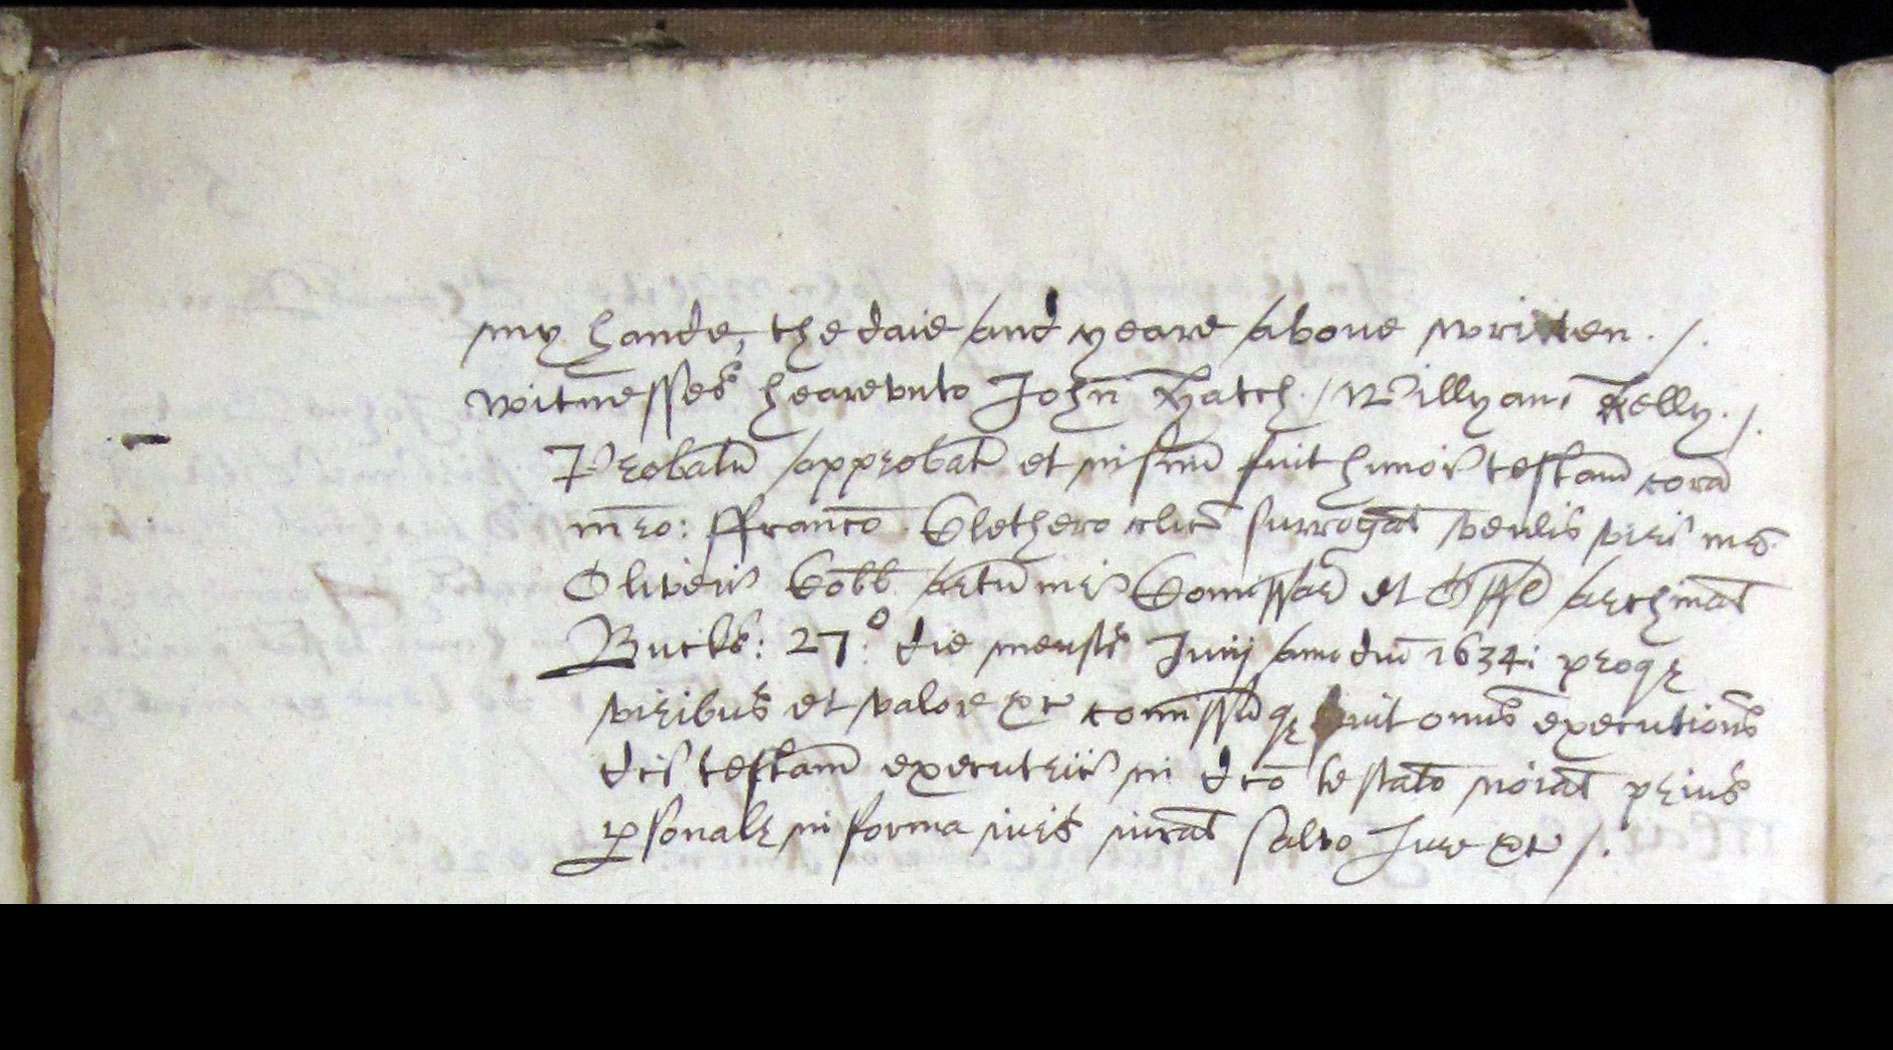 my hande, the daie and yeare above written ./.
witnesses hearevnto John Hatch ./ Willyam Kelly ./.
Probatū approbat̄ et insinū fuit hmōi testam̄ corā
mr̄o: ffranco Clethero clico surrogat̄ venlis viri mri
Oliveri Cobb artiū mri Comissar̄ et Offic̄ Archinat̄
Bucks: 27.º die mensis Junij anō dnī 1634: proqȝ
viribus et valore etc comissūqȝ fuit onus executionis
dci testam̄ executrici in dco testato noiat̄ prius
psonalr in forma iuris iurat̄ salvo Jure etc /.